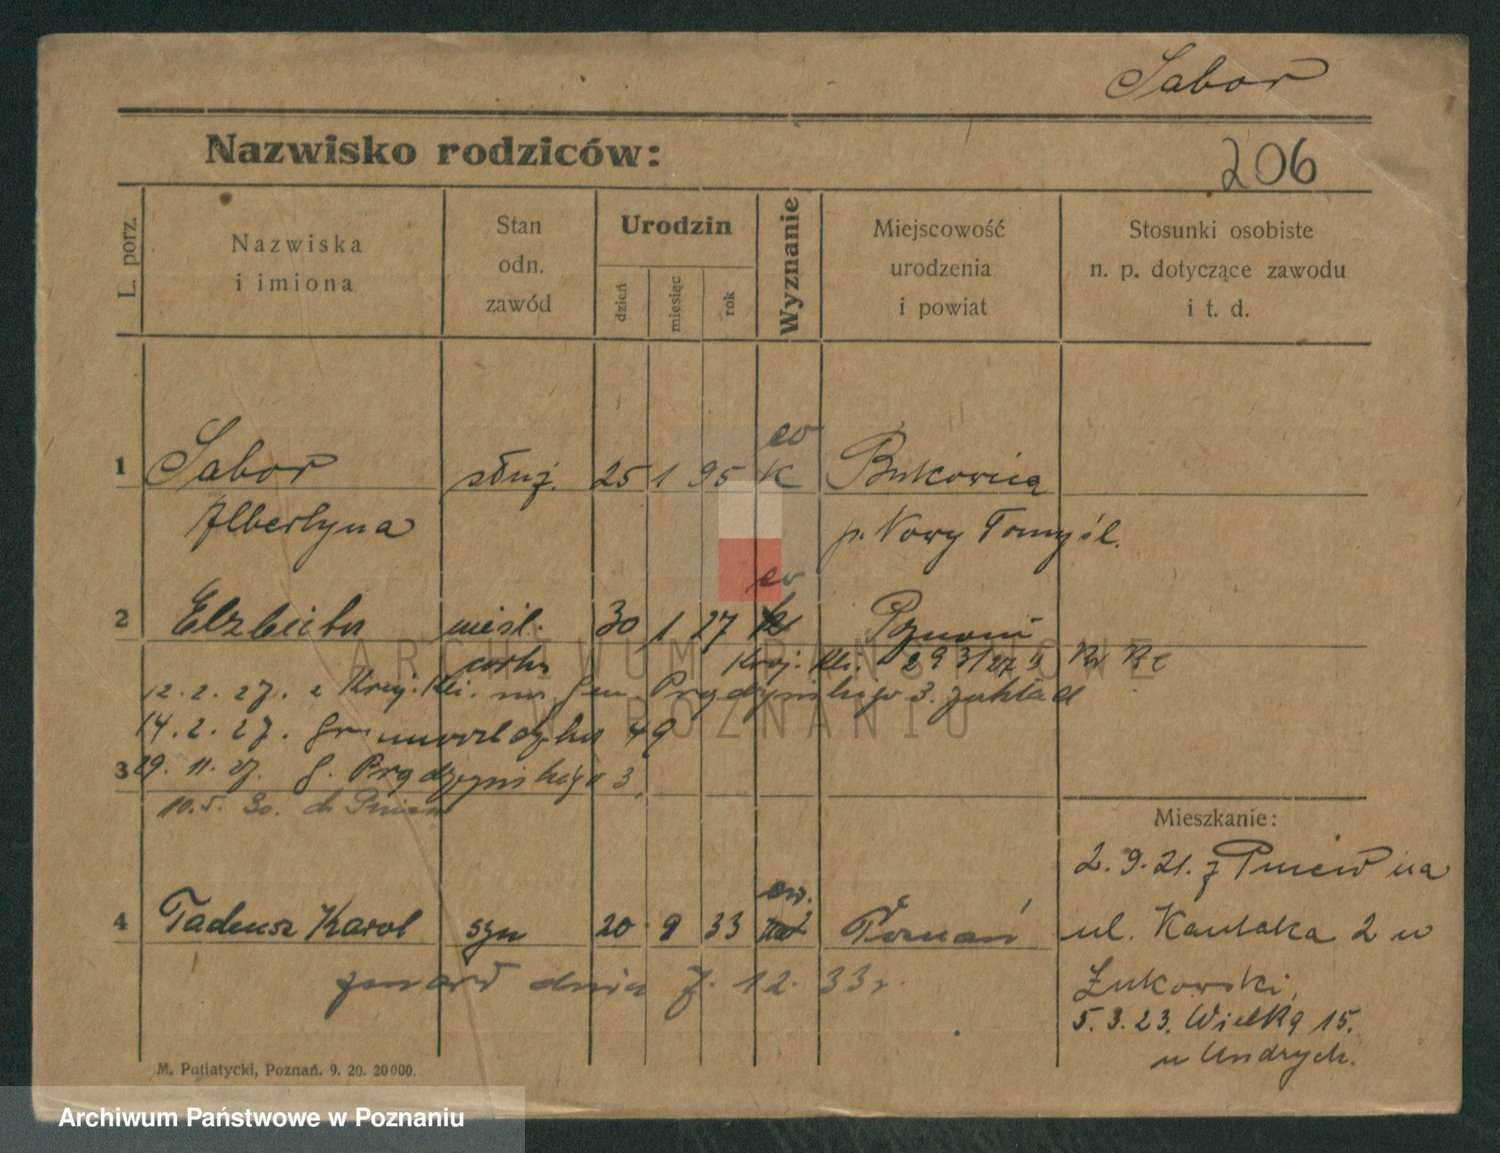 Sabor
Nazwisko rodziców:
206
L. porz.
Nazwiska
i imiona
Stan
odn.
zawód
Urodzin
dzień
miesiąc
rok
Wyznanie
Miejscowość
urodzenia
i powiat
Stosunki osobiste
n. p. dotyczące zawodu
i t. d.
ew
1 Sabor służ. 25 1 95 k Bukowica
Albertyna p. Nowy Tomyśl.
ew
2 Elzbieta nieśl. 30 1 27 Poznań
córka Kraj. Kli. 293/27
12.2.27. z Kraj. Kli. na Gen. Prądzyńskiego 3. zakład
14.2.27. Grunwaldzka 49
3 29.11.27. G. Prądzyńskiego 3.
10.5.30. do Pniew
Mieszkanie:
2.9.21. z Pniew na
ul. Kantaka 2 u
Żukowski,
5.3.23. Wielka 15.
u Undrych.
ew.
4 Tadeusz Karol syn 20 9 33 Poznań
zmarł dnia 7.12.33r.
M. Putiatycki, Poznań. 9. 20. 20000.
ARCHIWUM PAŃSTWOWE
W POZNANIU
Archiwum Państwowe w Poznaniu